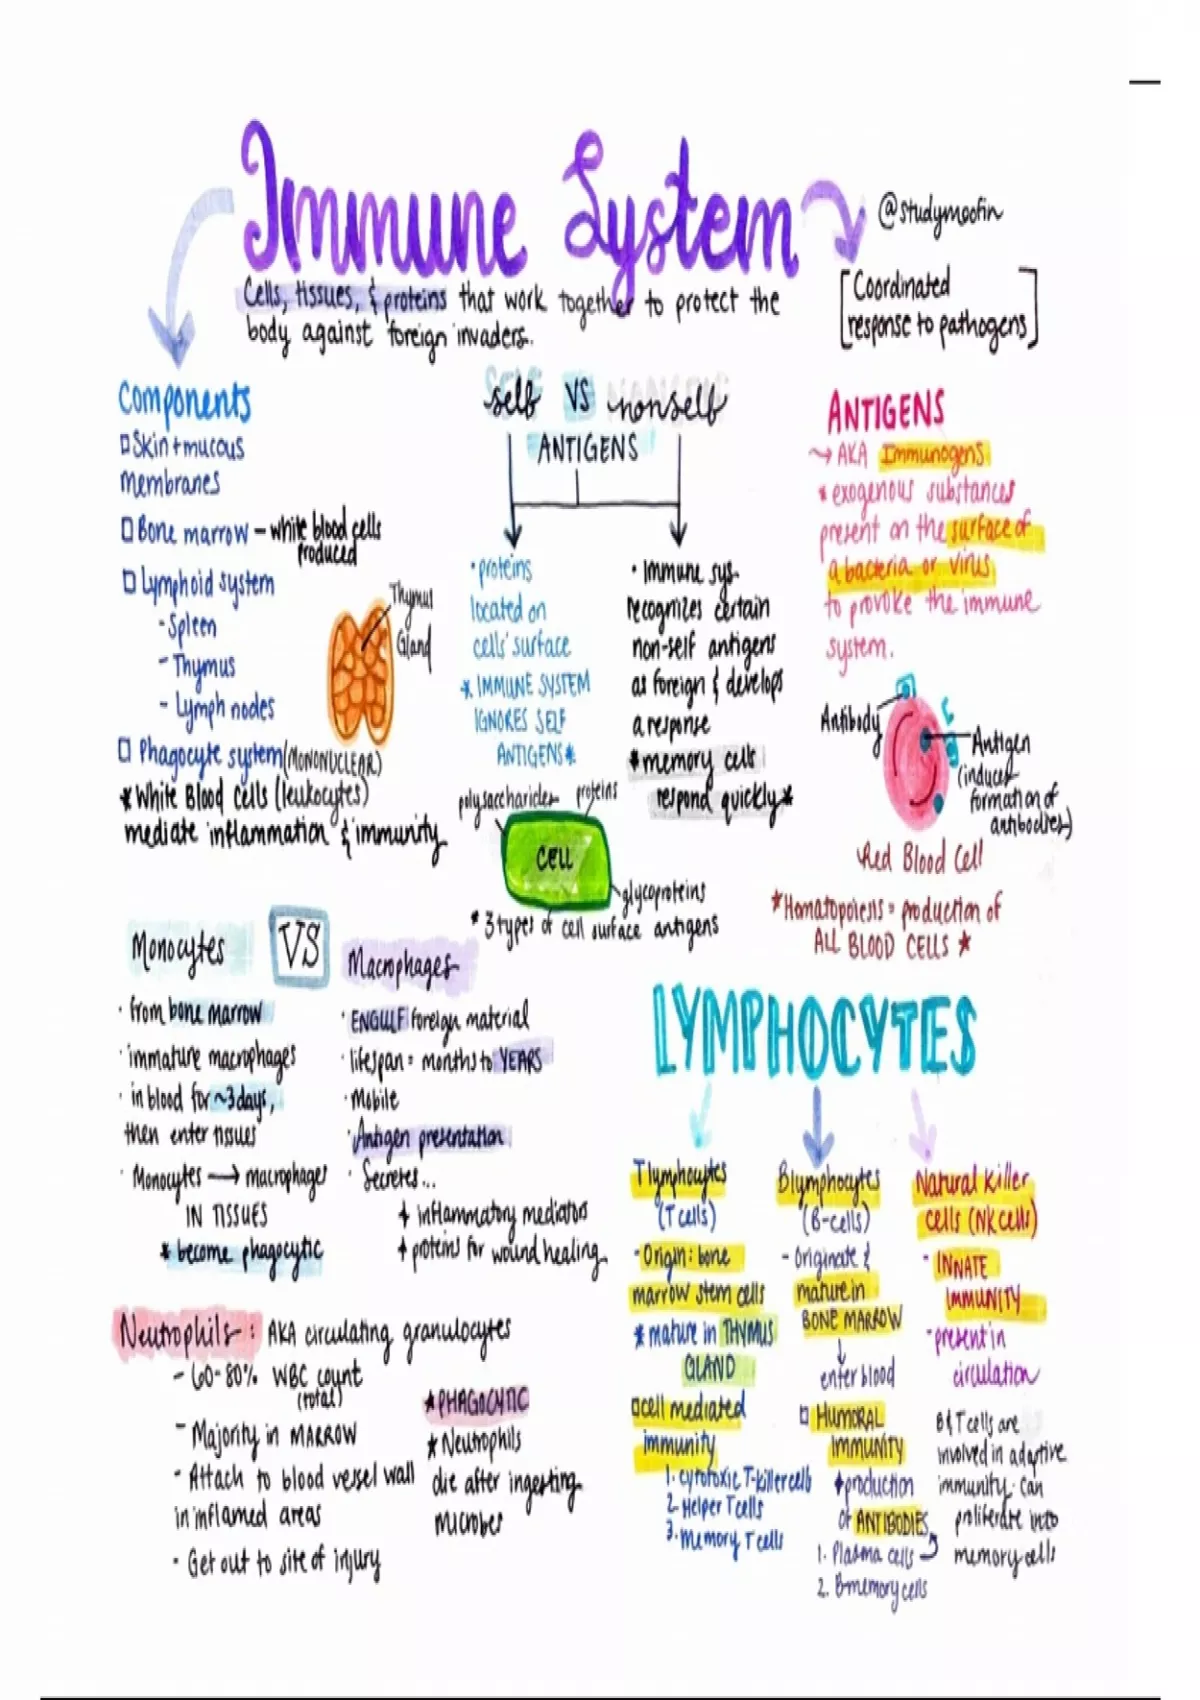 Immune System
@studymoofin
Cells, tissues, & proteins that work together to protect the
body against foreign invaders.
[Coordinated
response to pathogens]
Components
□ Skin + mucous
membranes
□ Bone marrow – white blood cells
produced
□ Lymphoid system
- Spleen
- Thymus
- Lymph nodes
Thymus
Gland
□ Phagocyte system (MONONUCLEAR)
* White Blood Cells (leukocytes)
mediate inflammation & immunity
self VS nonself
ANTIGENS
• proteins
located on
cells' surface
* IMMUNE SYSTEM
IGNORES SELF
ANTIGENS *
• Immune sys.
recognizes certain
non-self antigens
as foreign & develops
a response
* memory cells
respond quickly *
polysaccharides proteins
CELL
glycoproteins
* 3 types of cell surface antigens
ANTIGENS
→ AKA Immunogens
* exogenous substances
present on the surface of
a bacteria or virus
to provoke the immune
system.
Antibody
Antigen
(induces
formation of
antibodies)
Red Blood Cell
* Hematopoiesis = production of
ALL BLOOD CELLS *
Monocytes VS Macrophages
• from bone marrow
• immature macrophages
• in blood for ~3 days,
then enter tissues
• Monocytes → macrophages
IN TISSUES
* become phagocytic
• ENGULF foreign material
• lifespan = months to YEARS
• Mobile
• Antigen presentation
• Secretes...
↓ inflammatory mediators
↑ proteins for wound healing
Neutrophils: AKA circulating granulocytes
- 60-80% WBC count
(total)
- Majority in MARROW
- Attach to blood vessel wall
in inflamed areas
• Get out to site of injury
* PHAGOCYTIC
* Neutrophils
die after ingesting
microbes
LYMPHOCYTES
T lymphocytes
(T cells)
- Origin: bone
marrow stem cells
* mature in THYMUS
GLAND
□ cell mediated
immunity
1. cytotoxic T-killer cells
2. Helper T cells
3. Memory T cells
B lymphocytes
(B-cells)
- originate &
mature in
BONE MARROW
↓
enter blood
□ HUMORAL
IMMUNITY
↑ production
of ANTIBODIES
1. Plasma cells
2. B-memory cells
Natural Killer
cells (NK cells)
- INNATE
IMMUNITY
- present in
circulation
B & T cells are
involved in adaptive
immunity. Can
proliferate into
memory cells